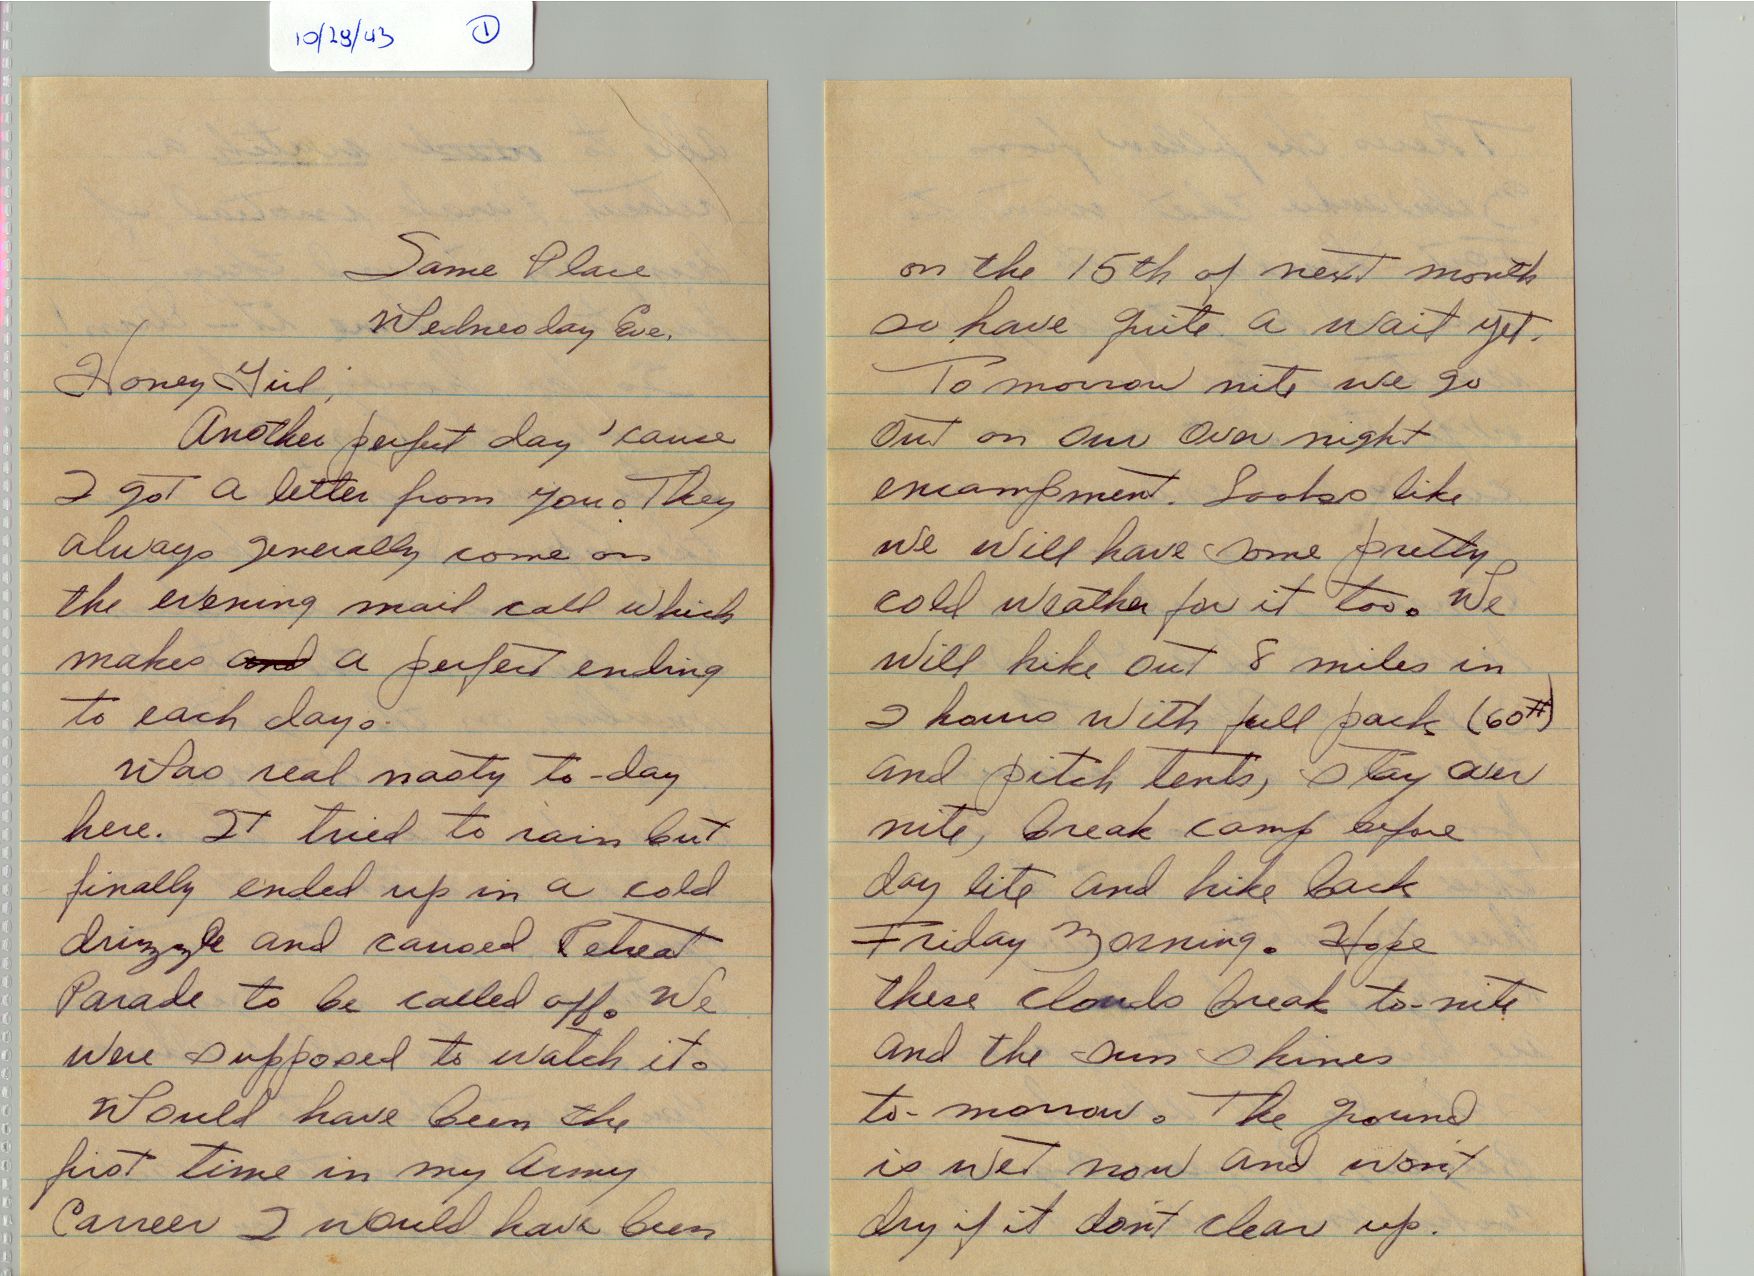 10/28/43 1
Same Place
Wednesday Eve.
Honey Girl;
Another perfect day 'cause
I got a letter from you. They
always generally come on
the evening mail call which
makes and a perfect ending
to each day.
Was real nasty to-day
here. It tried to rain but
finally ended up in a cold
drizzle and caused Retreat
Parade to be called off. We
were supposed to watch it.
Would have been the
first time in my Army
Carreer I would have been
on the 15th of next month
so have quite a wait yet.
Tomorrow nite we go
out on our over night
encampment. Looks like
we will have some pretty
cold weather for it too. We
will hike out 8 miles in
2 hours with full pack (60#)
and pitch tents, stay over
nite, break camp before
day lite and hike back
Friday Morning. Hope
these clouds break to-nite
and the sun shines
to-morrow. The ground
is wet now and won't
dry if it don't clear up.